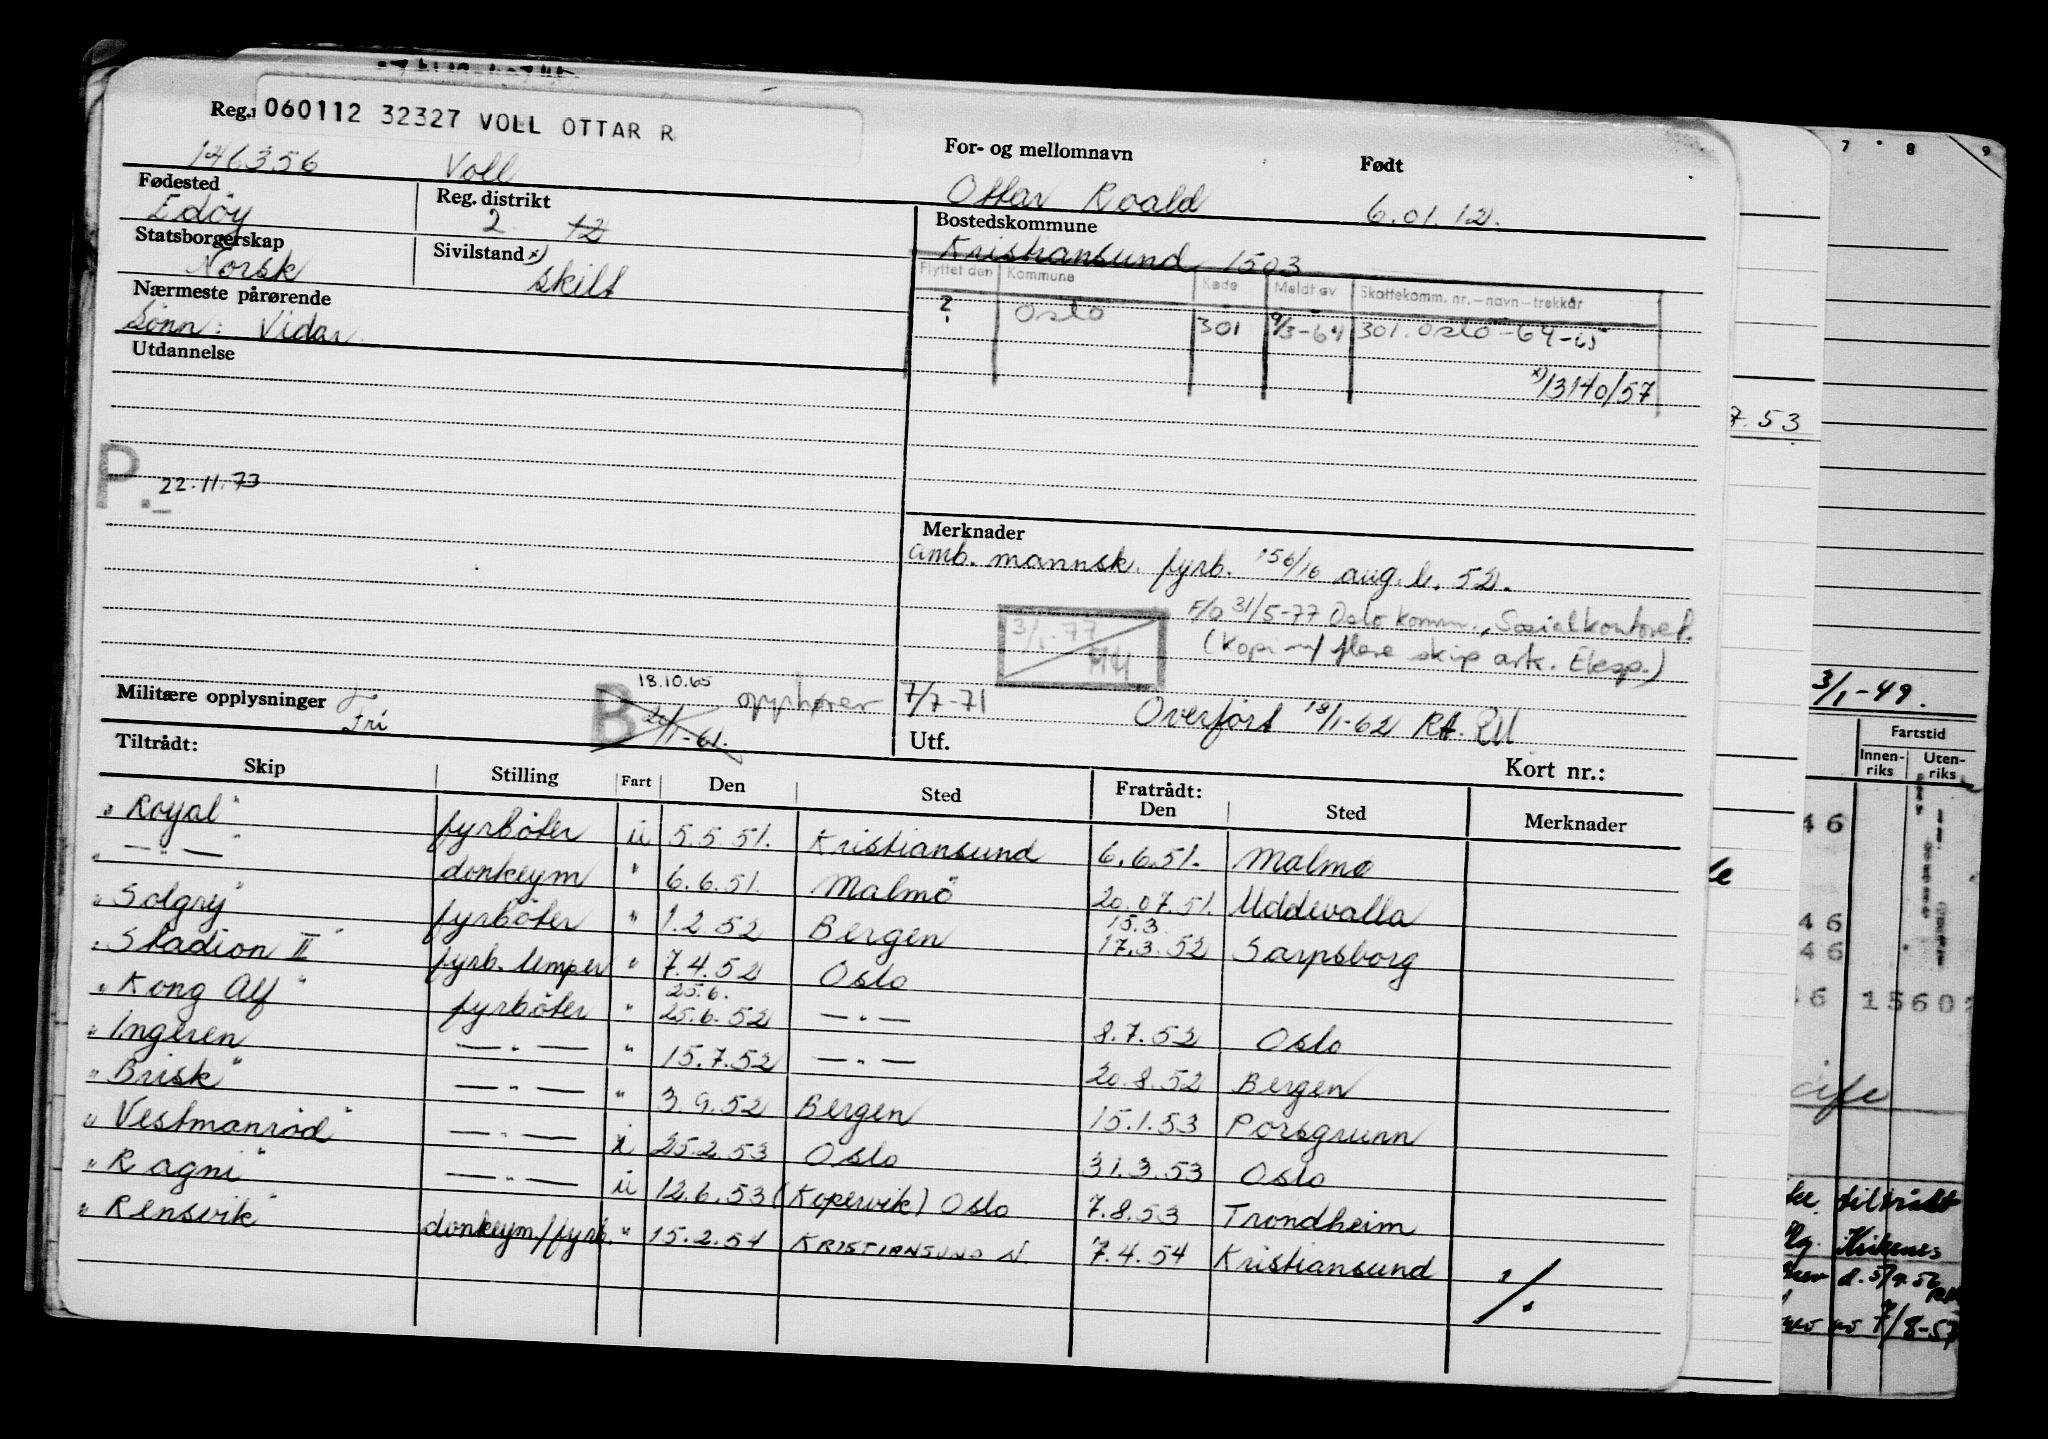 060112 32327 VOLL OTTAR R
146356 Voll
For- og mellomnavn Født
Ottar Roald 6.01.12.
Fødested Reg. distrikt
Edöy 2 12
Bostedskommune
Kristiansund 1503
Statsborgerskap Sivilstand x)
Norsk skilt
Flyttet den Kommune Kode Meldt av Skattekomm. nr.-navn-trekkår
? Oslo 301 9/3-64 301. Oslo-64-65
x) 13140/57
Nærmeste pårørende
Sönn: Vidar
Utdannelse
P. 22.11.73
Merknader
Amb. mannsk. fyrb. 156/16 aug. l. 52.
F/O 31/5-77 Oslo komm., Sosialkontoret.
(Kopi m/ flere skip ark. Eksp.)
3/1-77
Militære opplysninger
Fri
18.10.65
B 24/1-61. opphører 7/7-71
Overført 18/1-62 RA.
Tiltrådt: Utf. Kort nr.:
Skip Stilling Fart Den Sted Fratrådt: Den Sted Merknader
"Royal" fyrböter u 5.5.51. Kristiansund 6.6.51. Malmö
" — " — donkeym " 6.6.51. Malmö 20.07.51. Uddevalla
"Solgry" fyrböter " 1.2.52 Bergen 15.3. 17.3.52 Sarpsborg
"Stadion II" fyrb. lemper " 7.4.52 Oslo
"Kong Alf" fyrböter " 25.6. 25.6.52 — " — 8.7.52 Oslo
"Ingeren — " — " 15.7.52 — " — 20.8.52 Bergen
"Brisk" — " — " 3.9.52 Bergen 15.1.53 Porsgrunn
"Vestmanröd" — " — i 25.2.53 Oslo 31.3.53 Oslo
"Ragni" — " — u 12.6.53 (Kopervik) Oslo 7.8.53 Trondheim
"Rensvik" donkeym/fyrb. " 15.2.54 KRISTIANSUND N. 7.4.54 Kristiansund ./.
7 8 9
7.53
3/1-49.
Fartstid
Innen-riks Uten-riks
46
46
46
46 1560
tiltrådt
Kirkenes
7/8-57